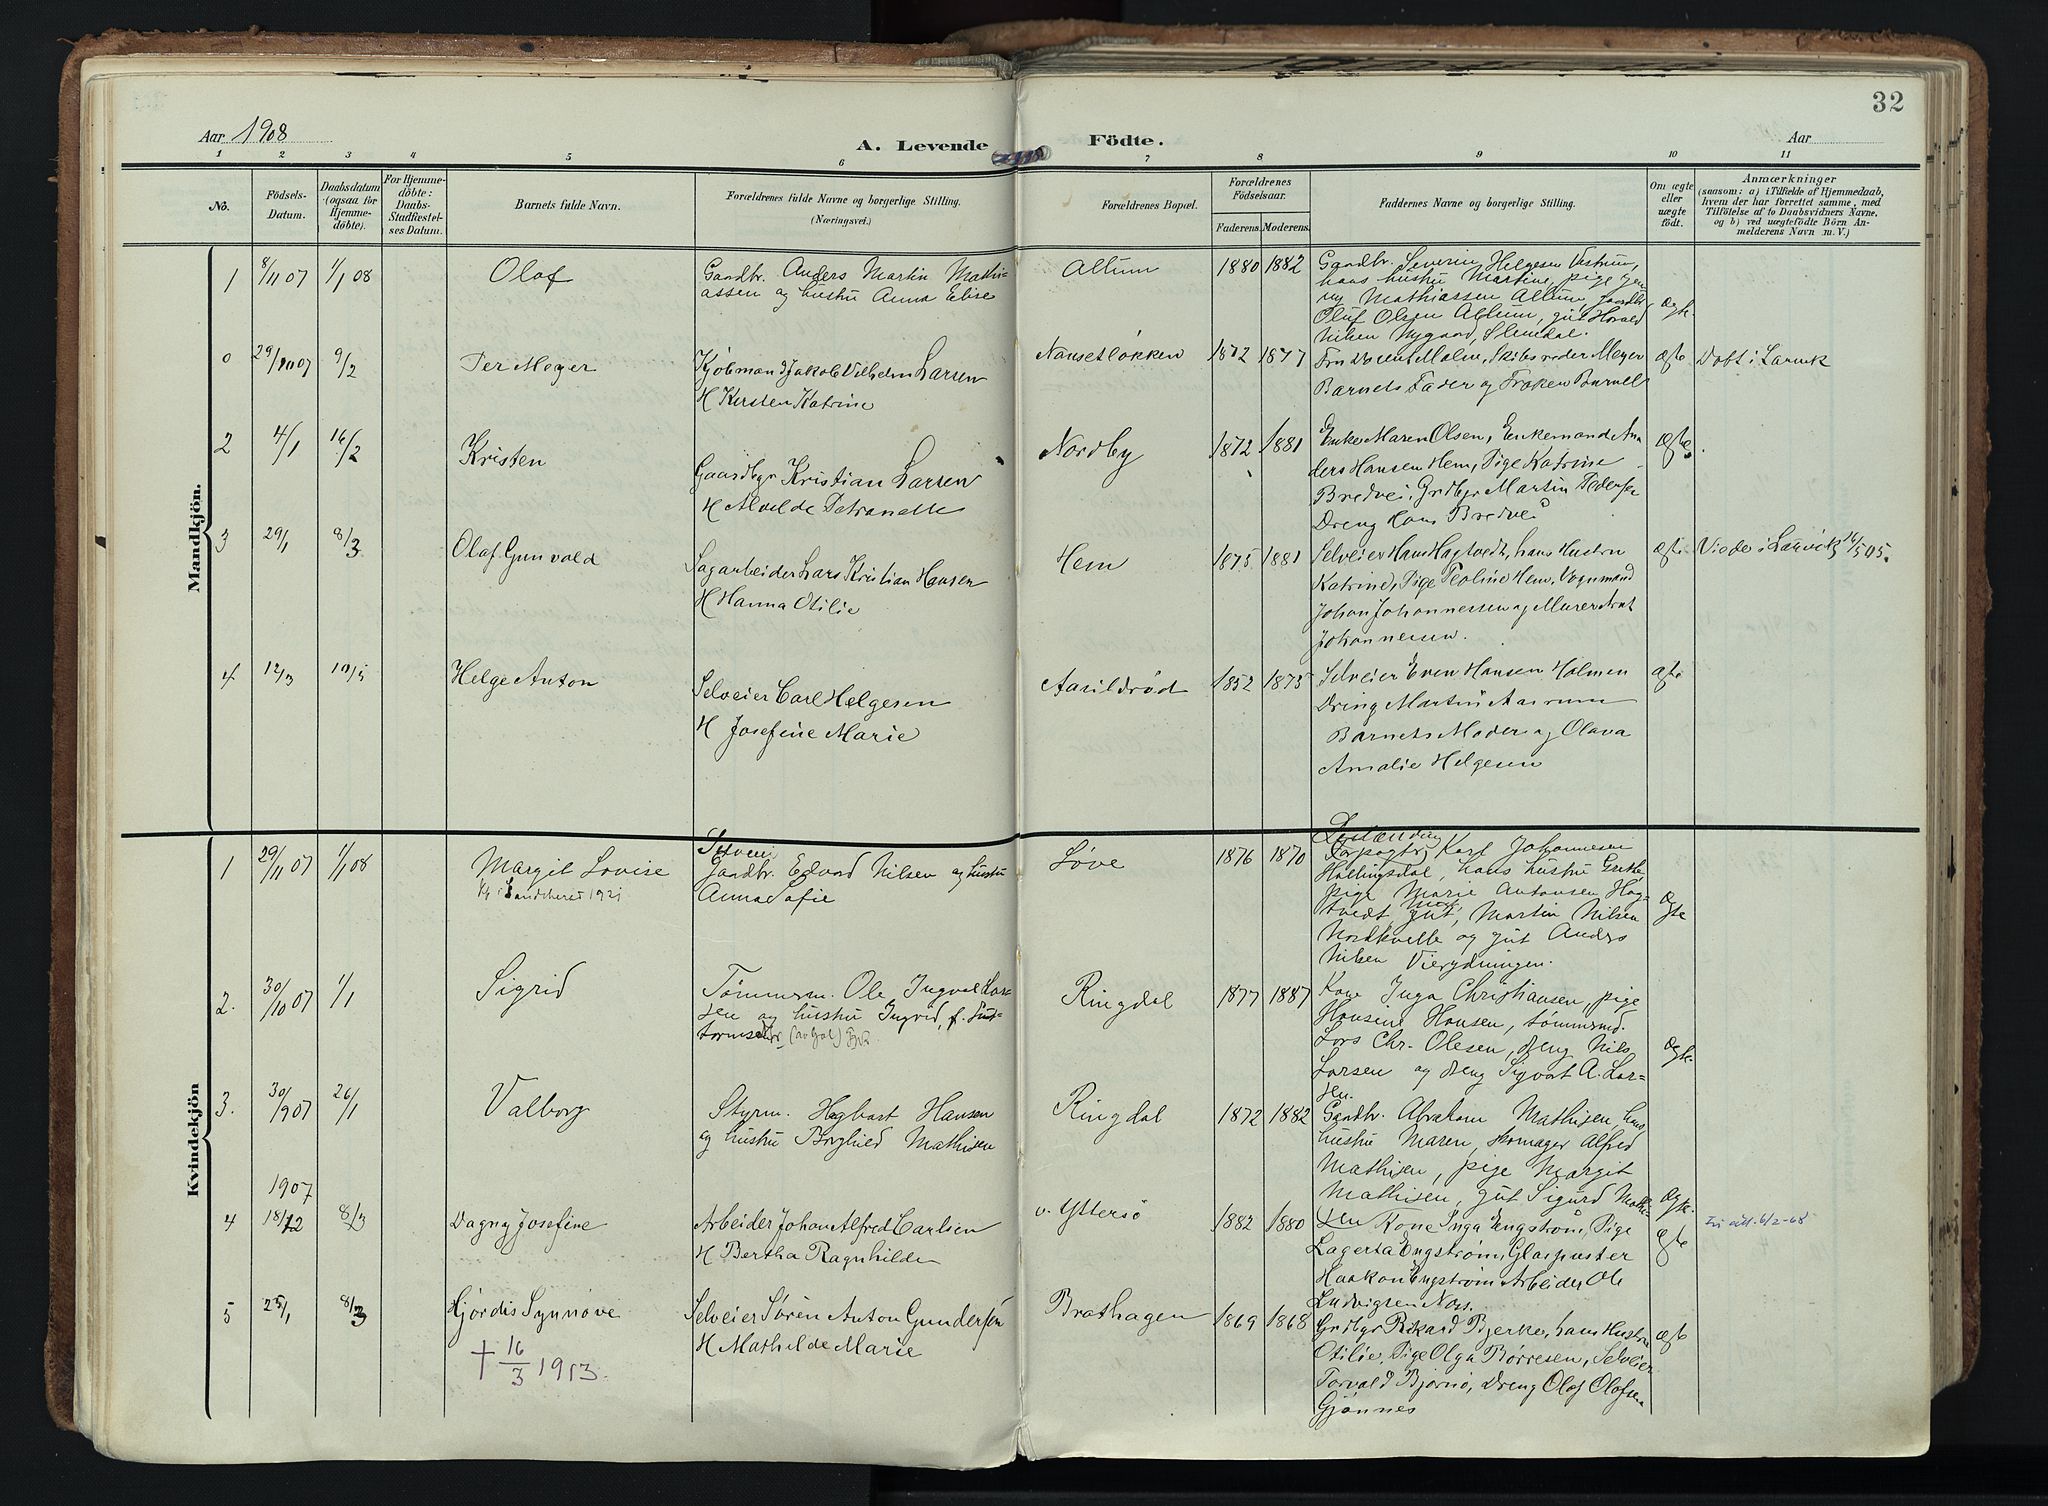 32
Aar 1908
A. Levende Födte.
Aar
1 2 3 4 5 6 7 8 9 10 11
No.
Födsels-
Datum.
Daabsdatum
(ogsaa for
Hjemme-
döbte).
For Hjemme-
döbte:
Daabs-
Stadfæstel-
ses Datum.
Barnets fulde Navn.
Forældrenes fulde Navne og borgerlige Stilling.
(Næringsvei.)
Forældrenes Bopæl.
Forældrenes
Födselsaar.
Faderens. Moderens.
Faddernes Navne og borgerlige Stilling.
Om ægte
eller
uægte
födt.
Anmærkninger
(saasom: a) i Tilfælde af Hjemmedaab,
hvem der har forrettet samme, med
Tilföielse af to Daabsvidners Navne,
og b) ved uægtefödte Börn An-
melderens Navn m. V.)
Mandkjön.
1 8/11 07 1/1 08 Olaf
Gaardbr. Anders Martin Mathi-
assen og hustru Anna Elise
Allum 1880 1882
Gaardbr. Severin Helgesen
hans hustru Martine, pige Jen-
ny Mathiassen Allum, Gaardbr.
Oluf Olsen Allum, gut Harald
Nilsen Nygaard,
ægte
0 29/10 07 9/2 Per Meyer
Kjöbmand Jakob Vilhelm Larsen
H Kirsten Katrine
Nansetløkken 1872 1877
Malm, Skibsreder Meyer
Barnets Fader og Frøken
ægte Døbt i Larvik
2 4/1 16/2 Kristen
Gaardbgr Kristian Larsen
H Alvilde Petronelle
Nordby 1872 1881
Enke Maren Olsen, Enkemand An
ders Hansen Hem, Pige Katrine
Bredvei, Grdbgr Martin Pedersen
Dreng Hans Bredvei
ægte
3 29/1 8/3 Olaf Gunvald
Sagarbeider Lars Kristian Hansen
H Hanna Otilie
Hem 1875 1881
Selveier Hans Hagtvedt, hans Hustru
Katrine, Pige Teoline Hem, Vognmand
Johan Johannessen og Murer Arnt
Johannesen.
ægte Viede i Larvik 16/5 05.
4 12/3 10/5 Helge Anton
Selveier Carl Helgesen
H Josefine Marie
Aarildrød 1852 1875
Selveier Even Hansen Holmen
Dreng Martin Aasrum
Barnets Moder og Olava
Amalie Helgesen
ægte
Kvindekjön
1 29/11 07 1/1 08 Margit Lovise
Selveier
Gaardbr. Edvard Nilsen og hustru
Anna Sofie
Løve 1876 1870
Forpagter, Karl Johannesen
Hallingsdal, hans hustru Grethe
pige Marie Antonsen Hag-
tvedt, gut, Martin Nilsen
Nordkvelle og gut Anders
Nilsen Vierydningen.
ægte
2. 30/10 07 1/1 Sigrid
Tömmerm. Ole Ingvald Lar-
sen og hustru Ingrid, f.
Ringdal 1877 1887
Kone Inga Christiansen, pige
Hansine Hansen, tømmermd.
Lars Chr. Olesen, dreng Nils
Larsen og dreng Sigvart A. Lar-
sen.
ægte
3. 30/9 07 26/1 Valborg
Styrm. Hagbart Hansen
og hustru Borghild Mathisen
Ringdal 1872 1882
Gaardbr. Abraham Mathisen, hans
hustru Maren, skomager Alfred
Mathisen, pige Margit
Mathisen, gut Sigurd Mathi-
sen
ægte
1907
4 18/12 8/3 Dagny Josefine
Arbeider Johan Alfred Carlsen
H Bertha Ragnhilde
v. Yttersø 1882 1880
Kone Inga Engstrøm, Pige
Lagerta Engstrøm, Glaspuster
Haakon Engstrøm Arbeider Ole
Ludvigsen Næs.
ægte 6/2-68
5 25/1 8/3 Hjørdis Synnøve
† 16/3 1913.
Selveier Søren Anton Gundersen
H Mathilde Marie
Brathagen 1869 1868
Grdbgr Rikard Bjerke, hans Hustru
Otilie, Pige Olga Børresen, Selveier
Torvald Bjørnø, Dreng Olaf Olafsen
Gjønnes
ægte